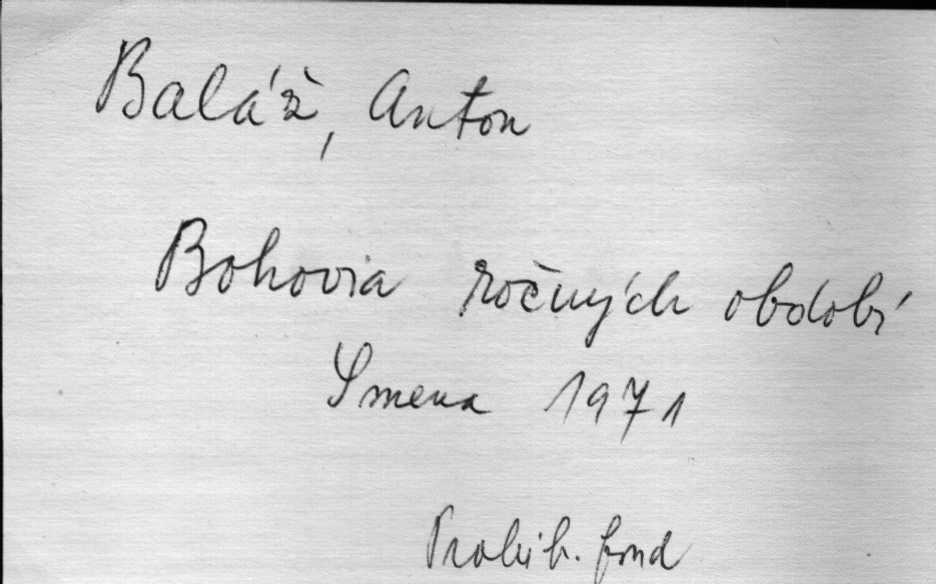 Baláž, Anton
Bohovia ročných období
Smena 1971
Prohib. fond